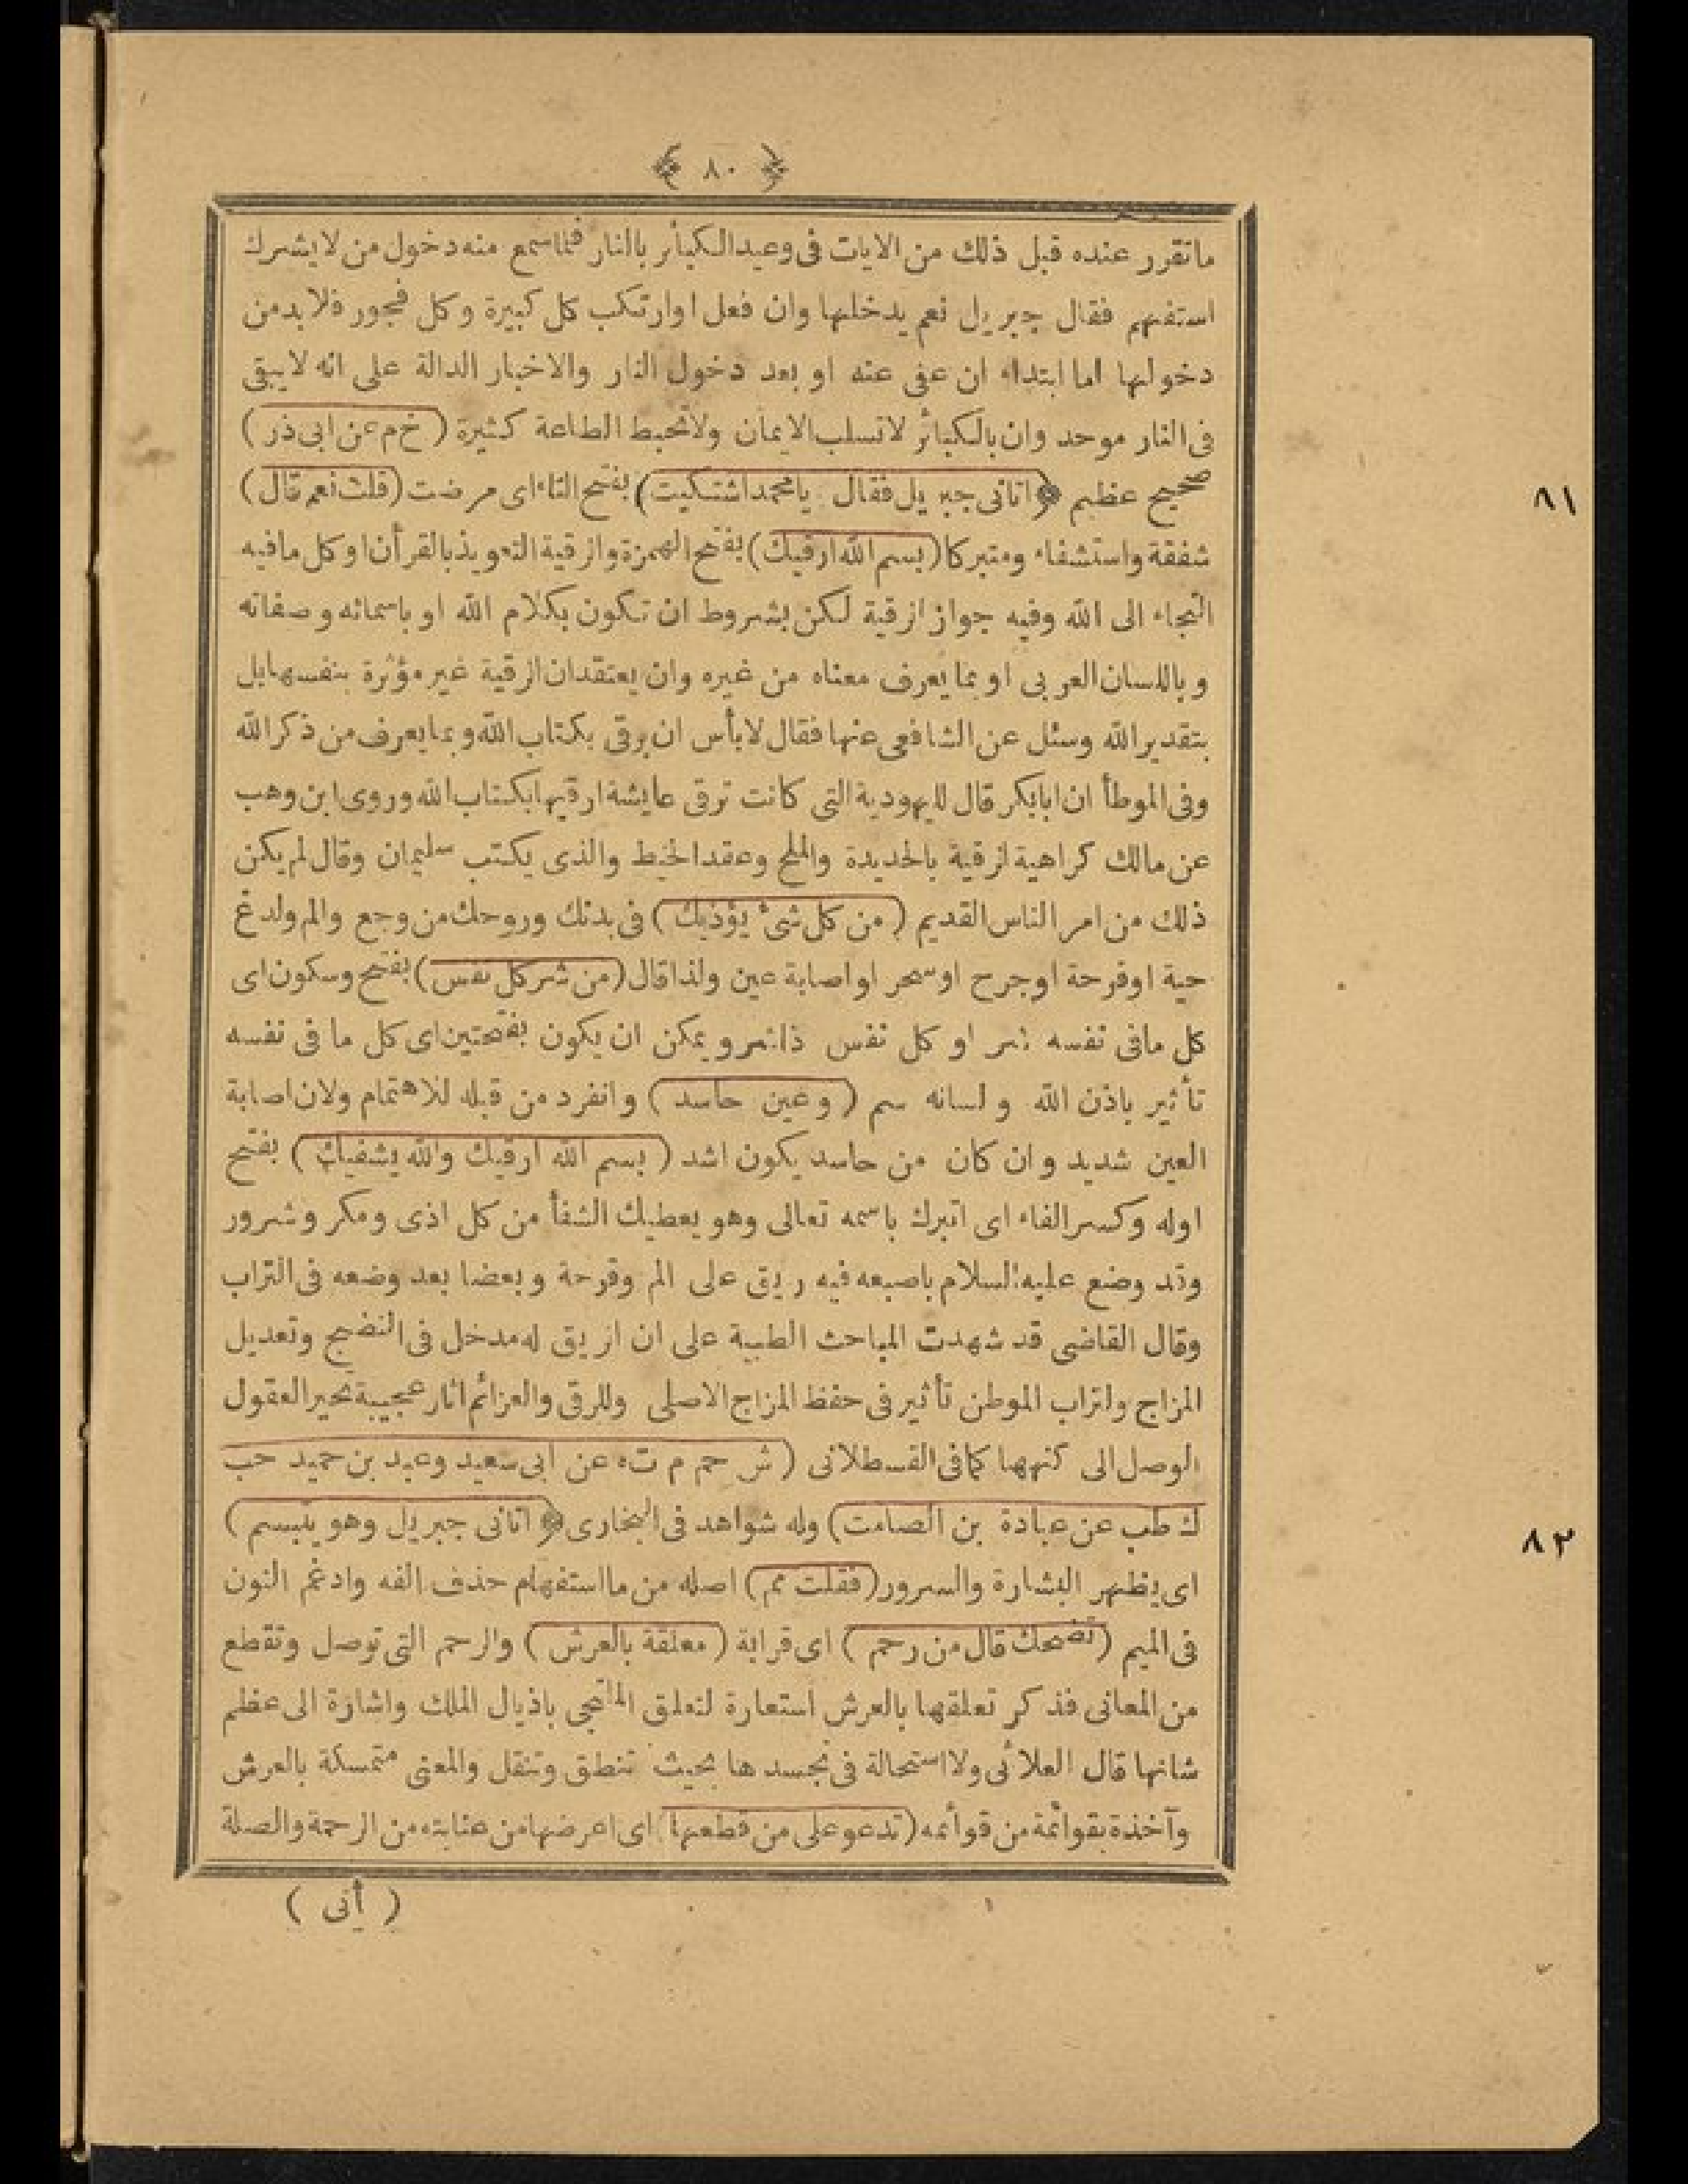 ﴿ ٨٠ ﴾
ماتقرر عنده قبل ذلك من الايات فى وعيد الكبأر بالنار فلما سمع منه دخول من لايشرك
استفهم فقال جبريل نعم يدخلها وان فعل اوارتكب كل كبيرة وكل فجور فلابد من
دخولها اما ابتداء ان عفى عنه او بعد دخول النار والاخبار الدالة على انه لايبقى
فى النار موحد وان بالكبائر لاتسلب الايمان ولاتحبط الطاعة كثيرة (خ م عن ابى ذر)
صحيح عظيم ﴿اتانى جبريل فقال يا محمد اشتكيت) بفتح التاء اى مرضت (قلت نعم قال)
شفقة واستشفاء ومتبركا (بسم الله ارقيك) بفتح الهمزة والرقية التعويذ بالقرأن اوكل مافيه
التجاء الى الله وفيه جواز الرقية لكن بشروط ان تكون بكلام الله او باسمائه وصفاته
وباللسان العربى او بما يعرف معناه من غيره وان يعتقد ان الرقية غير مؤثرة بنفسها بل
بتقدير الله وسئل عن الشافعى عنها فقال لابأس ان يرقى بكتاب الله وبما يعرف من ذكر الله
وفى الموطأ ان ابابكر قال لليهودية التى كانت ترقى عايشة ارقيها بكتاب الله وروى ابن وهب
عن مالك كراهية الرقية بالحديدة والملح وعقد الخيط والذى يكتب سليمان وقال لم يكن
ذلك من امر الناس القديم (من كل شئ يؤذيك) فى بدنك وروحك من وجع والم ولدغ
حية اوقرحة اوجرح اوسحر اواصابة عين ولذا قال (من شر كل نفس) بفتح وسكون اى
كل مافى نفسه شر او كل نفس ذاشر ويمكن ان يكون بفتحتين اى كل ما فى نفسه
تأثير باذن الله ولسانه سم (وعين حاسد) وانفرد من قبله للاهتمام ولان اصابة
العين شديد وان كان من حاسد يكون اشد (بسم الله ارقيك والله يشفيك) بفتح
اوله وكسر الفاء اى اتبرك باسمه تعالى وهو يعطيك الشفأ من كل اذى ومكر وشرور
وقد وضع عليه السلام باصبعه فيه ريق على الم وقرحة وبعضا بعد وضعه فى التراب
وقال القاضى قد شهدت المباحث الطبية على ان الريق له مدخل فى النضج وتعديل
المزاج ولتراب الموطن تأثير فى حفظ المزاج الاصلى وللرقى والعزائم اثار عجيبة تحير العقول
الوصل الى كنهها كما فى القسطلانى (ش حم م ت ه عن ابى سعيد وعبد بن حميد حب
ك طب عن عبادة بن الصامت) وله شواهد فى البخارى ﴿اتانى جبريل وهو يتبسم)
اى يظهر البشارة والسرور (فقلت مم) اصله من ما استفهام حذف الفه وادغم النون
فى الميم (تضحك قال من رحم) اى قرابة (معلقة بالعرش) والرحم التى توصل وتقطع
من المعانى فذكر تعلقها بالعرش استعارة لتعلق الملتجى باذيال الملك واشارة الى عظم
شانها قال العلائى ولااستحالة فى تجسدها بحيث تنطق وتنقل والمعنى متمسكة بالعرش
وآخذة بقوائمة من قوأئمه (تدعو على من قطعها) اى اعرضها من عنايته من الرحمة والصلة
( أنى )
٨١
٨٢